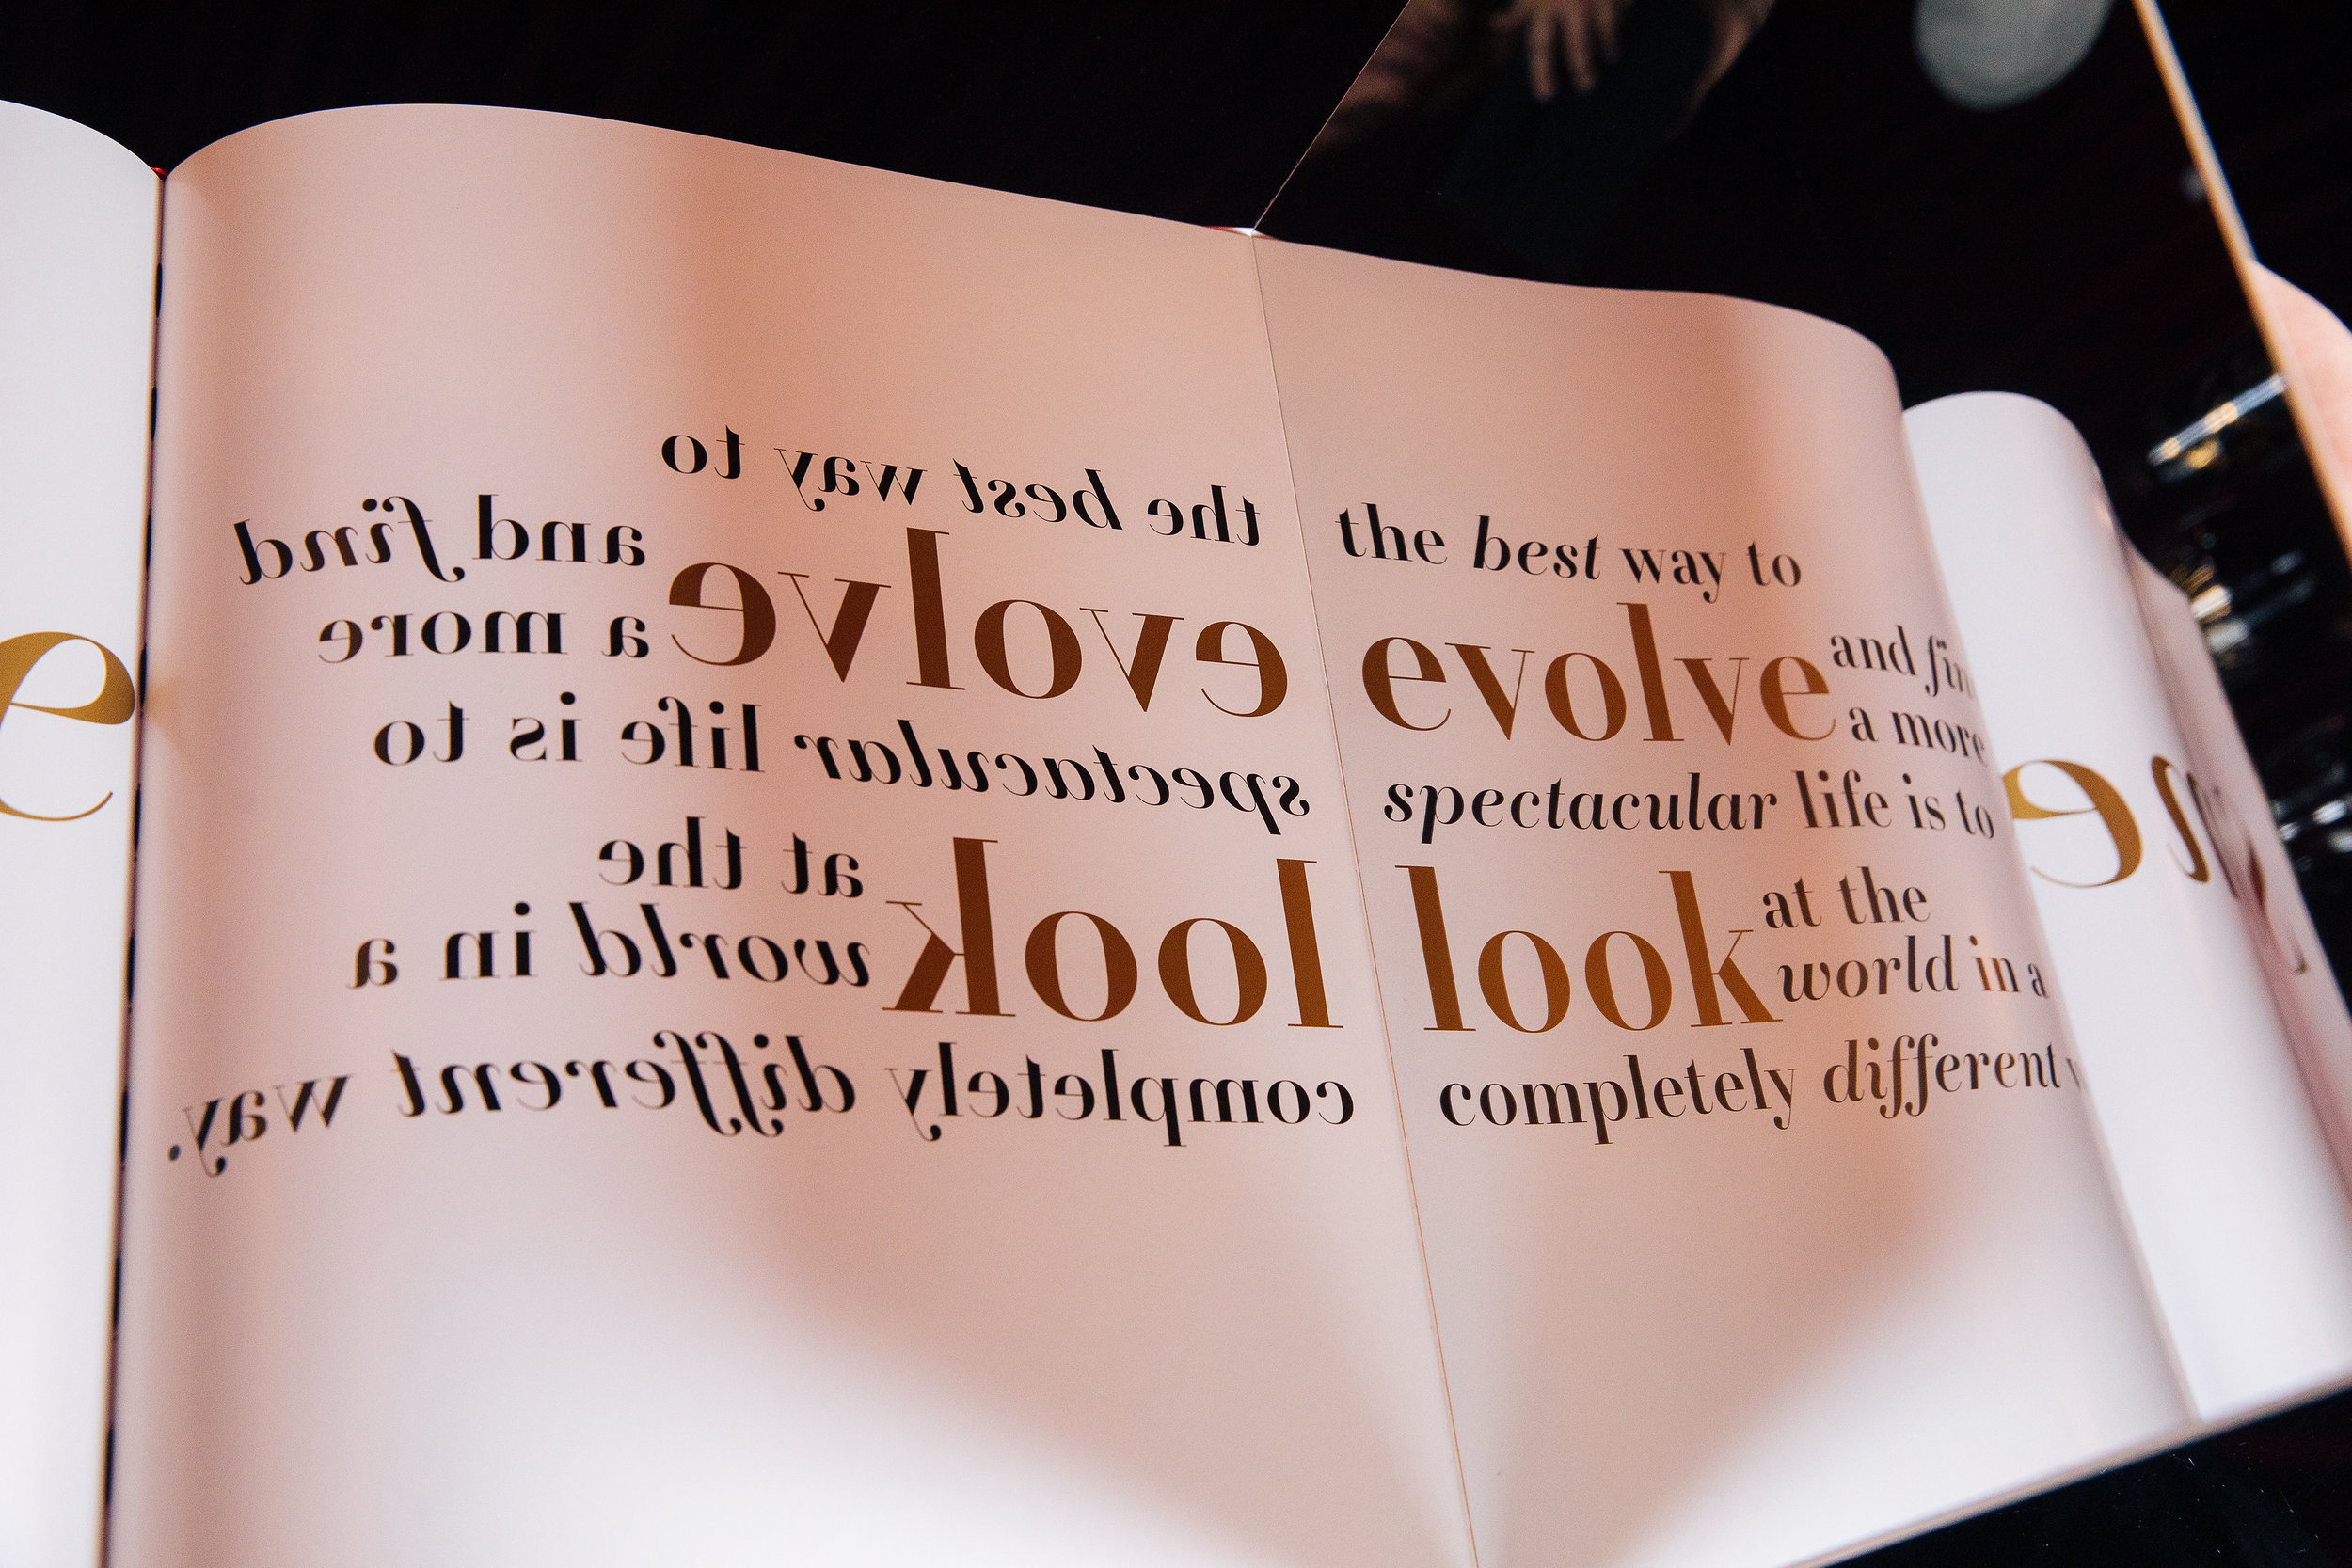 e
the best way to
evolve and find
a more
spectacular life is to
look at the
world in a
completely different way.
the best way to
evolve and fin
a more
spectacular life is to
look at the
world in a
completely different
e